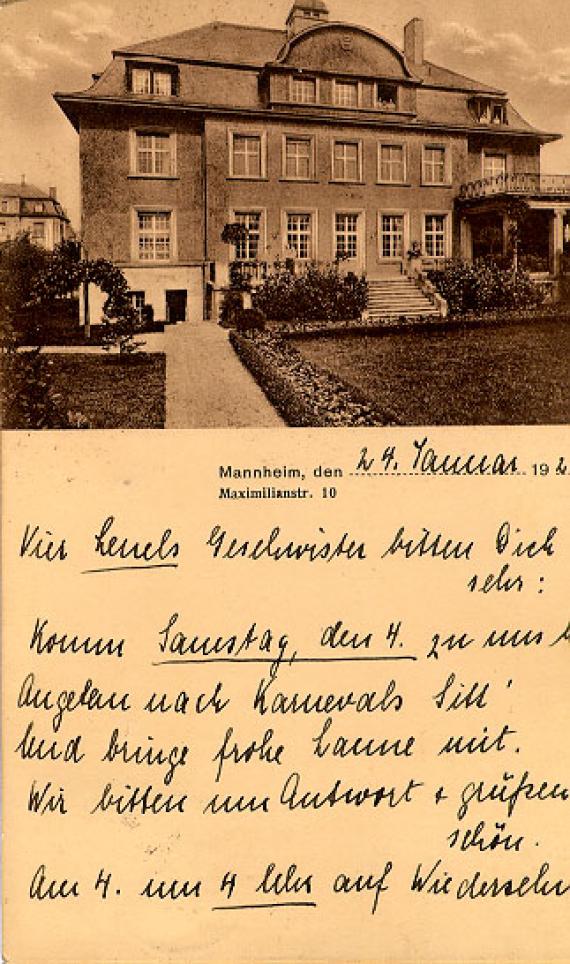 Mannheim, den 24. Januar 192
Maximilianstr. 10
Vier Lenels Geschwister bitten Dich
sehr:
Komm Samstag, den 4. zu uns
Angetan nach Karnevals Sitt'
Und bringe frohe Laune mit.
Wir bitten um Antwort + grüßen
schön.
Am 4. um 4 Uhr auf Wiedersehn